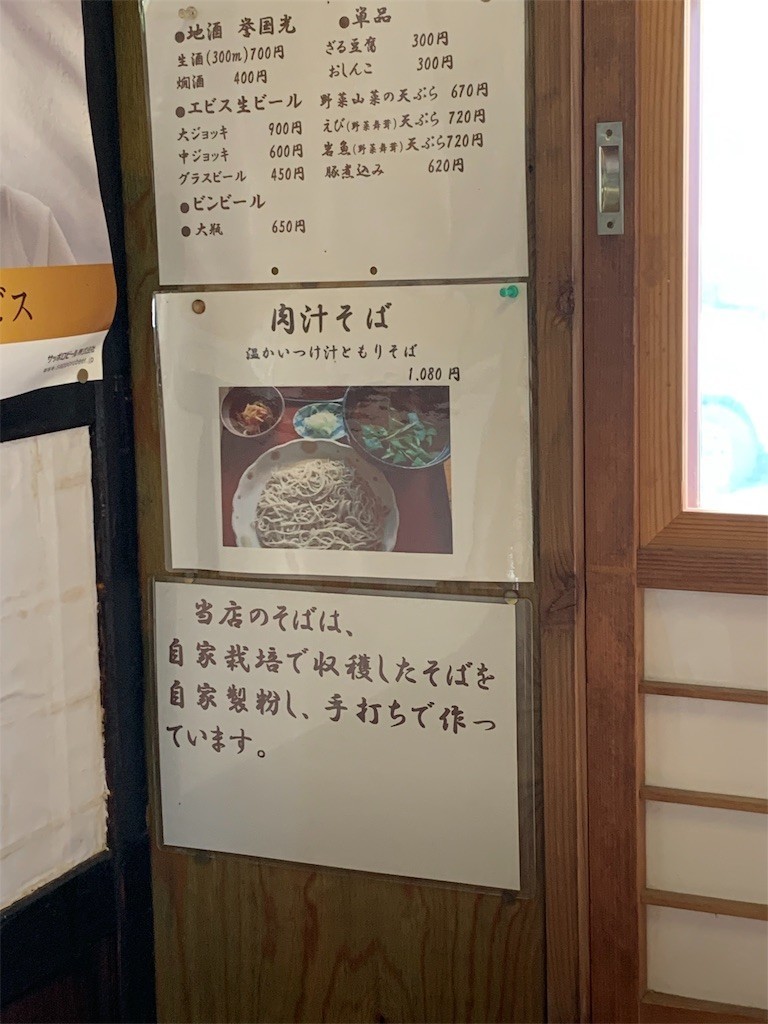 ●地酒 誉国光
生酒(300m)700円
燗酒 400円
●エビス生ビール
大ジョッキ 900円
中ジョッキ 600円
グラスビール 450円
●ビンビール
●大瓶 650円
●単品
ざる豆腐 300円
おしんこ 300円
野菜山菜の天ぷら 670円
えび(野菜舞茸)天ぷら 720円
岩魚(野菜舞茸)天ぷら720円
豚煮込み 620円
ビス
サッポロビール株式会社
肉汁そば
温かいつけ汁ともりそば
1.080 円
当店のそばは、
自家栽培で収穫したそばを
自家製粉し、手打ちで作っ
ています。